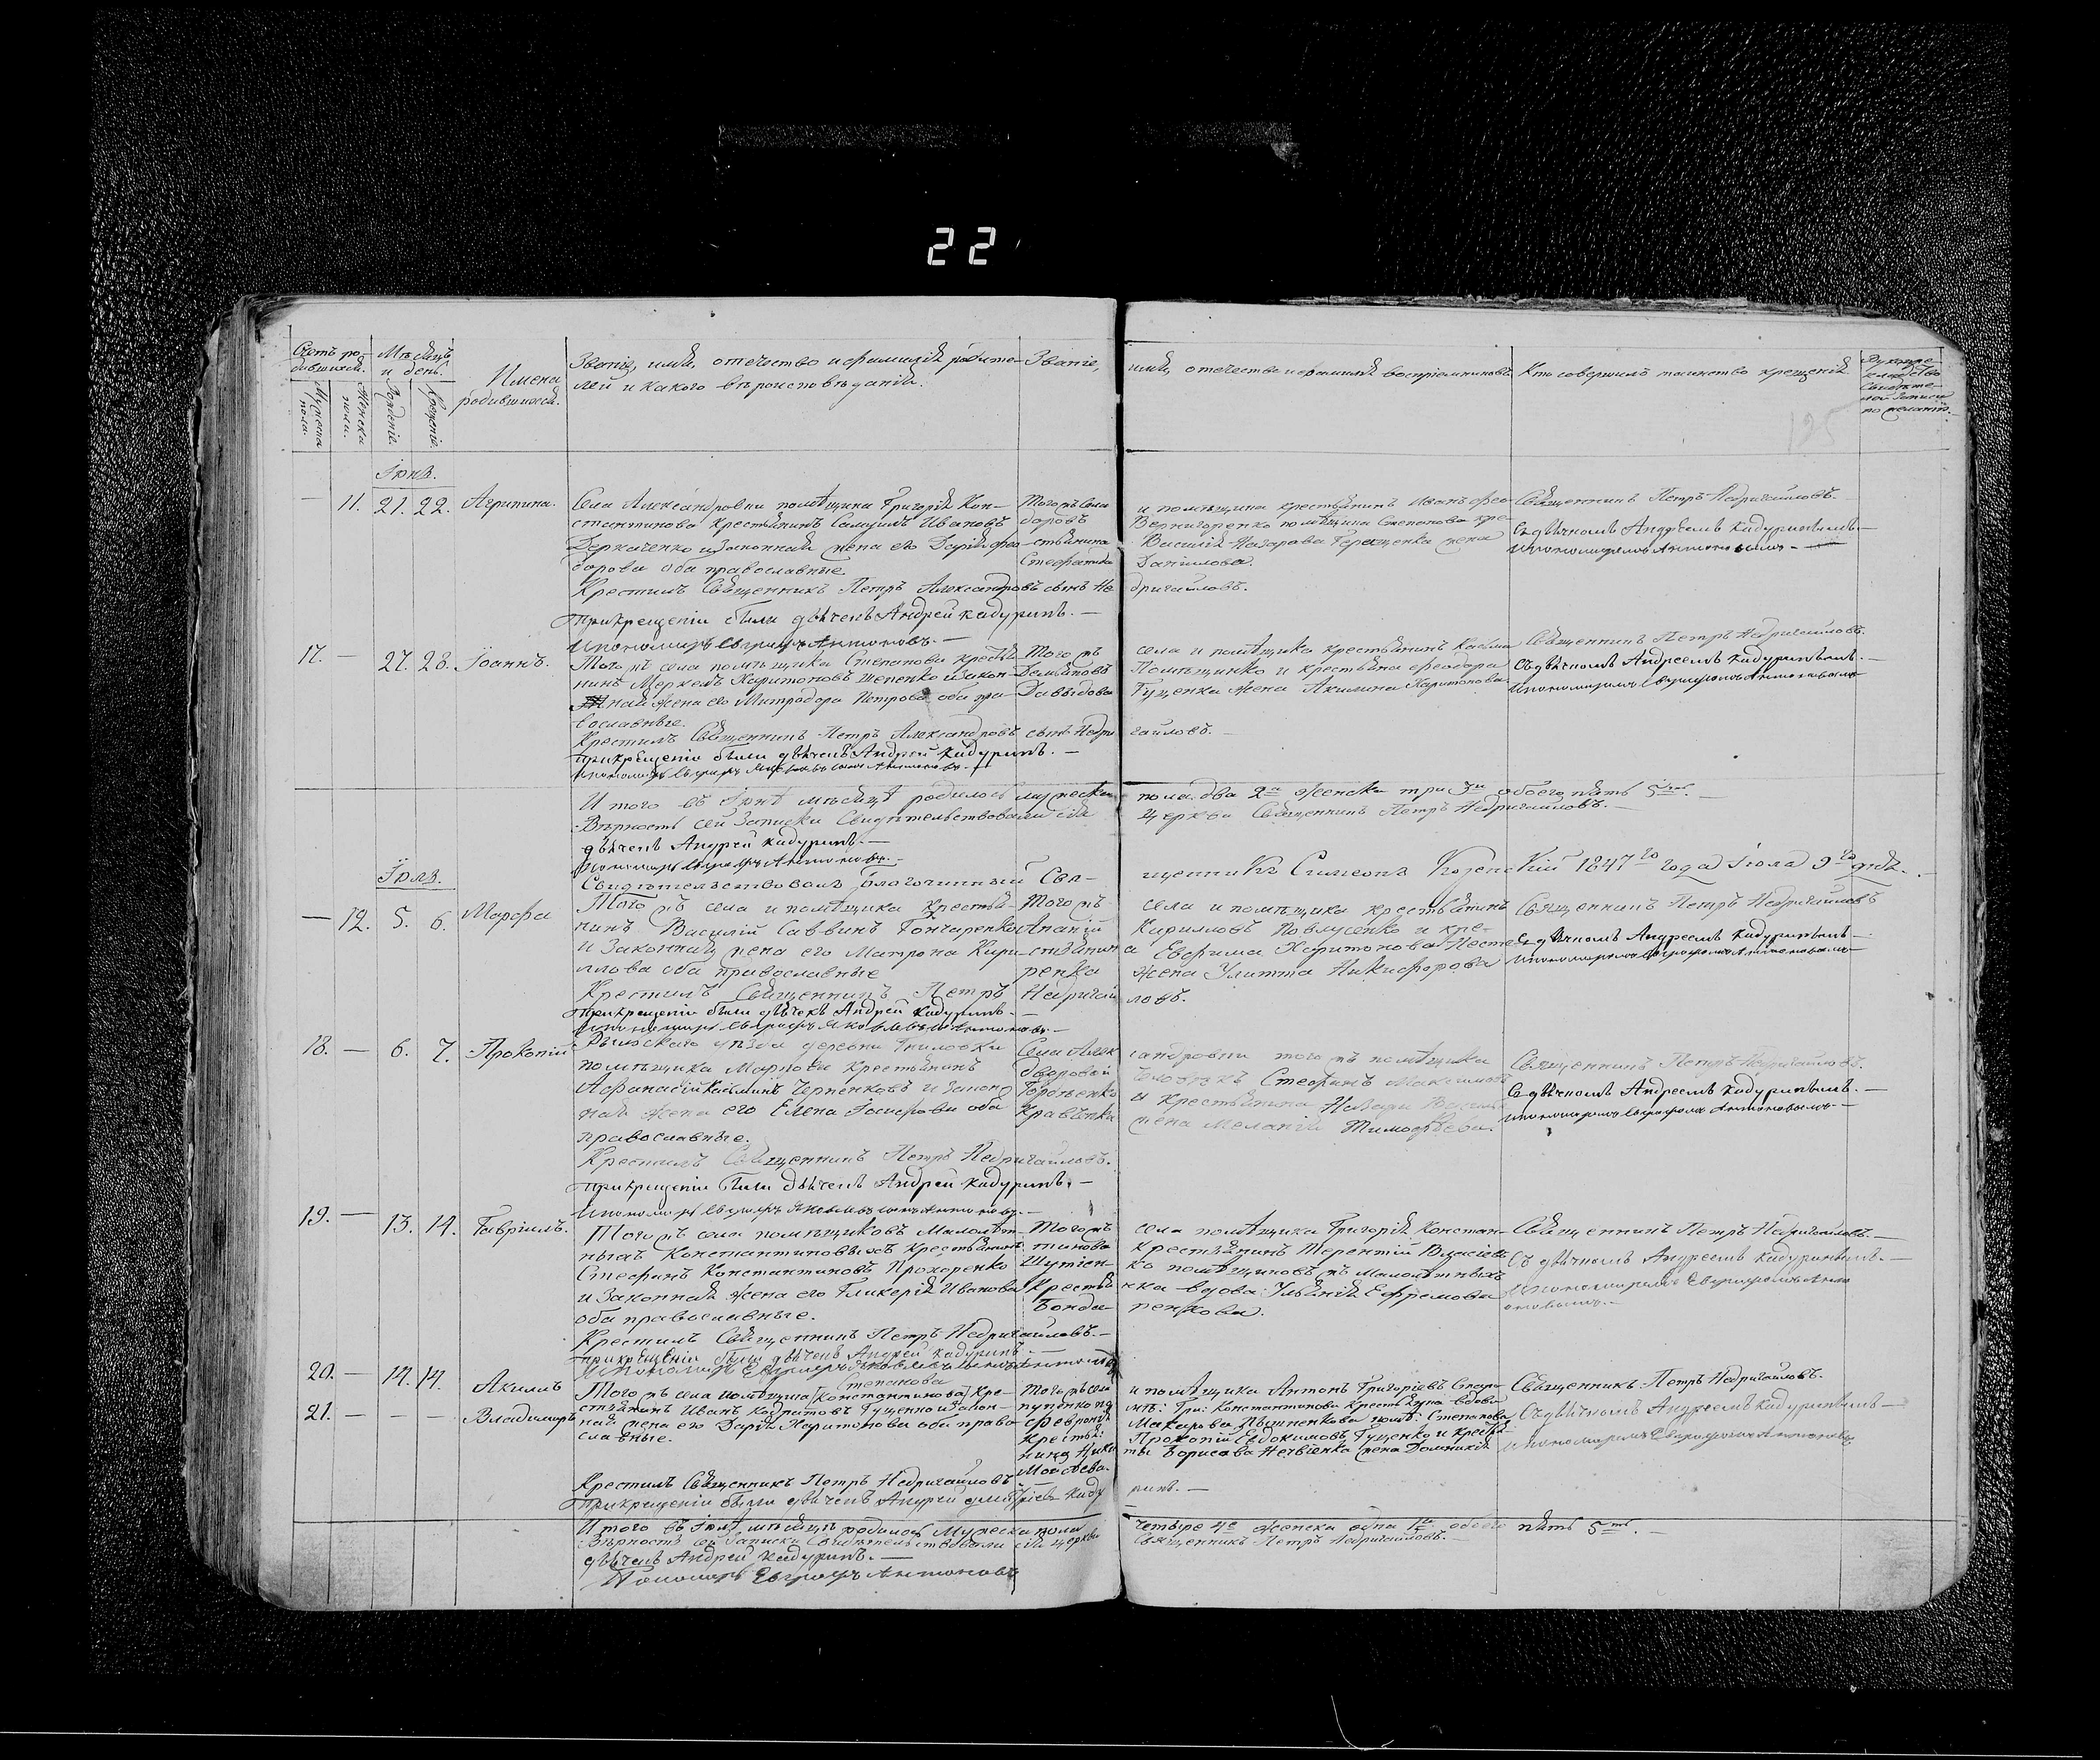 22
125
Счетъ ро-
дившихся.
Мужеска
пола.
Женска
пола.
Мѣсяцъ
и день.
Рожденіе.
Крещеніе.
Имена
родившихся.
Званіе, имя, отечество и фамилія родите-
лей и какого вѣроисповѣданія.
Званіе, имя, отечество и фамилія воспріемниковъ
Кто совершилъ таинство крещенія
Рукопри-
кладство
свидѣте-
лей записи
по желанію.
Іюня.
— 11. 21. 22. Агрипина.
Села Александровки помѣщика Григорія Кон-
стантинова крестьянинъ Самуилъ Ивановъ
Деркаченко и законная жена его Дарія Фео-
дорова оба православные
Крестилъ Священникъ Петръ Александровъ сынъ Недригайловъ.
При крещеніи были дьячекъ Андрей Кадуринъ. —
и пономарь Евграфъ Антоновъ. —
Тогожъ села и помѣщика крестьянинъ Иванъ Фео-
доровъ Вернигоренко помѣщика Степанова кре-
стьянина Василія Назарова Геращенка жена
Стефанида Данилова.
Священникъ Петръ Недригайловъ.
Съ дьячкомъ Андреемъ Кадуринымъ. —
и пономаремъ Антоновымъ. —
17. — 27. 28. Іоаннъ.
Тогожъ села помѣщика Степанова крестья-
нинъ Меркелъ Харитоновъ Шепенко и закон-
ная жена его Митродора Петрова оба пра-
вославные.
Крестилъ Священникъ Петръ Александровъ сынъ Недригайловъ. —
При крещеніи были дьячекъ Андрей Кадуринъ. —
Тогожъ села и помѣщика крестьянинъ Косьма
Демьяновъ Помѣщинко и крестьяна Феодора
Давыдова Гущенка жена Акилина Харитонова.
Священникъ Петръ Недригайловъ.
Съ дьячкомъ Андреемъ Кадуринымъ. —
и пономаремъ Евграфомъ Антоновымъ
Итого въ Іюнѣ мѣсяцѣ родилось мужеска пола два 2а женска три 3и обоего пять 5ть. —
Вѣрность сей записки свидѣтельствовали сія церкви Священникъ Петръ Недригайловъ. —
дьячекъ Андрей Кадуринъ. —
пономарь Евграфъ Антоновъ. —
Свидѣтельствовалъ благочинный Священникъ Симеонъ 1847го года Іюля 9го дня. —
Іюля.
— 12. 5. 6. Марфа
Тогожъ села и помѣщика крестья-
нинъ Василій Саввинъ Гончаренко
и законная жена его Матрона Кири-
лова оба православные
Крестилъ Священникъ Петръ Недригайловъ.
При крещеніи были дьячекъ Андрей Кадуринъ. —
Тогожъ села и помѣщика крестьянинъ
Ананій Кириловъ Повлусенко и кре-
стьянина Евфима Харитонова Несте-
ренка жена Улитта Никифорова
Священникъ Петръ Недригайловъ
Съ дьячкомъ Андреемъ Кадуринымъ —
и пономаремъ Евграфомъ Антоновымъ —
18. — 6. 7. Прокопій
Рыльскаго уѣзда деревни Гниловки
помѣщика Маркова крестьянинъ
Афанасій Касьминъ Черненковъ и закон-
ная жена его Елена Іосифова оба
православные.
Крестилъ Священникъ Петръ Недригайловъ.
При крещеніи были дьячекъ Андрей Кадуринъ. —
Села Александровки тогожъ помѣщика
дворовой человѣкъ Стефанъ Максимовъ
и крестьянина Назара
Кравченка жена Меланія Тимофѣева.
Священникъ Петръ Недригайловъ.
Съ дьячкомъ Андреемъ Кадуринымъ. —
и пономаремъ Евграфомъ Антоновымъ. —
19. — 13. 14. Гавріилъ.
Тогожъ села помѣщиковъ малолѣт-
ныхъ Константиновыхъ крестьянинъ
Стефанъ Константиновъ Прохоренко
и законная жена его Гликерія Иванова
оба православные.
Крестилъ Священникъ Петръ Недригайловъ. —
При крещеніи были дьячекъ Андрей Кадуринъ —
Тогожъ села помѣщика Григорія Констан-
тинова крестьянинъ Терентій Власіевъ
Шутіенко помѣщиковъ малолѣтныхъ
вдова Ефремова
Священникъ Петръ Недригайловъ. —
Съ дьячкомъ Андреемъ Кадуринымъ. —
и пономаремъ Евграфомъ Анто
новымъ. —
20. — 14. 14. Акимъ
21. — — — Владимиръ
Степанова
Тогожъ села помѣщика [Константинова] кре-
стьянинъ Иванъ Кодратовъ Гущенко и закон-
ная жена его Дарія Харитонова оба право-
славные.
Крестилъ Священникъ Петръ Недригайловъ
При крещеніи были дьячекъ Андрей Кадуринъ. —
Тогожъ села и помѣщика Антонъ Григоріевъ
Гри: Константинова вдова
Феврон. Макарова помѣ: Степанова
крестья: Прокопій Евдокимовъ Гущенко и крестья-
нина Никиты Борисова жена Домникія
Моисеева.
Священникъ Петръ Недригайловъ.
Съ дьячкомъ Андреемъ Кадуринымъ —
и пономаремъ Евграфомъ Антоновымъ
Итого въ Іюлѣ мѣсяцѣ родилось мужеска пола четыре 4е женска одна 1а обоего пять 5ть. —
Вѣрность сей записки свидѣтельствовали сія церкви Священникъ Петръ Недригайловъ. —
дьячекъ Андрей Кадуринъ. —
Пономарь Евграфъ Антоновъ